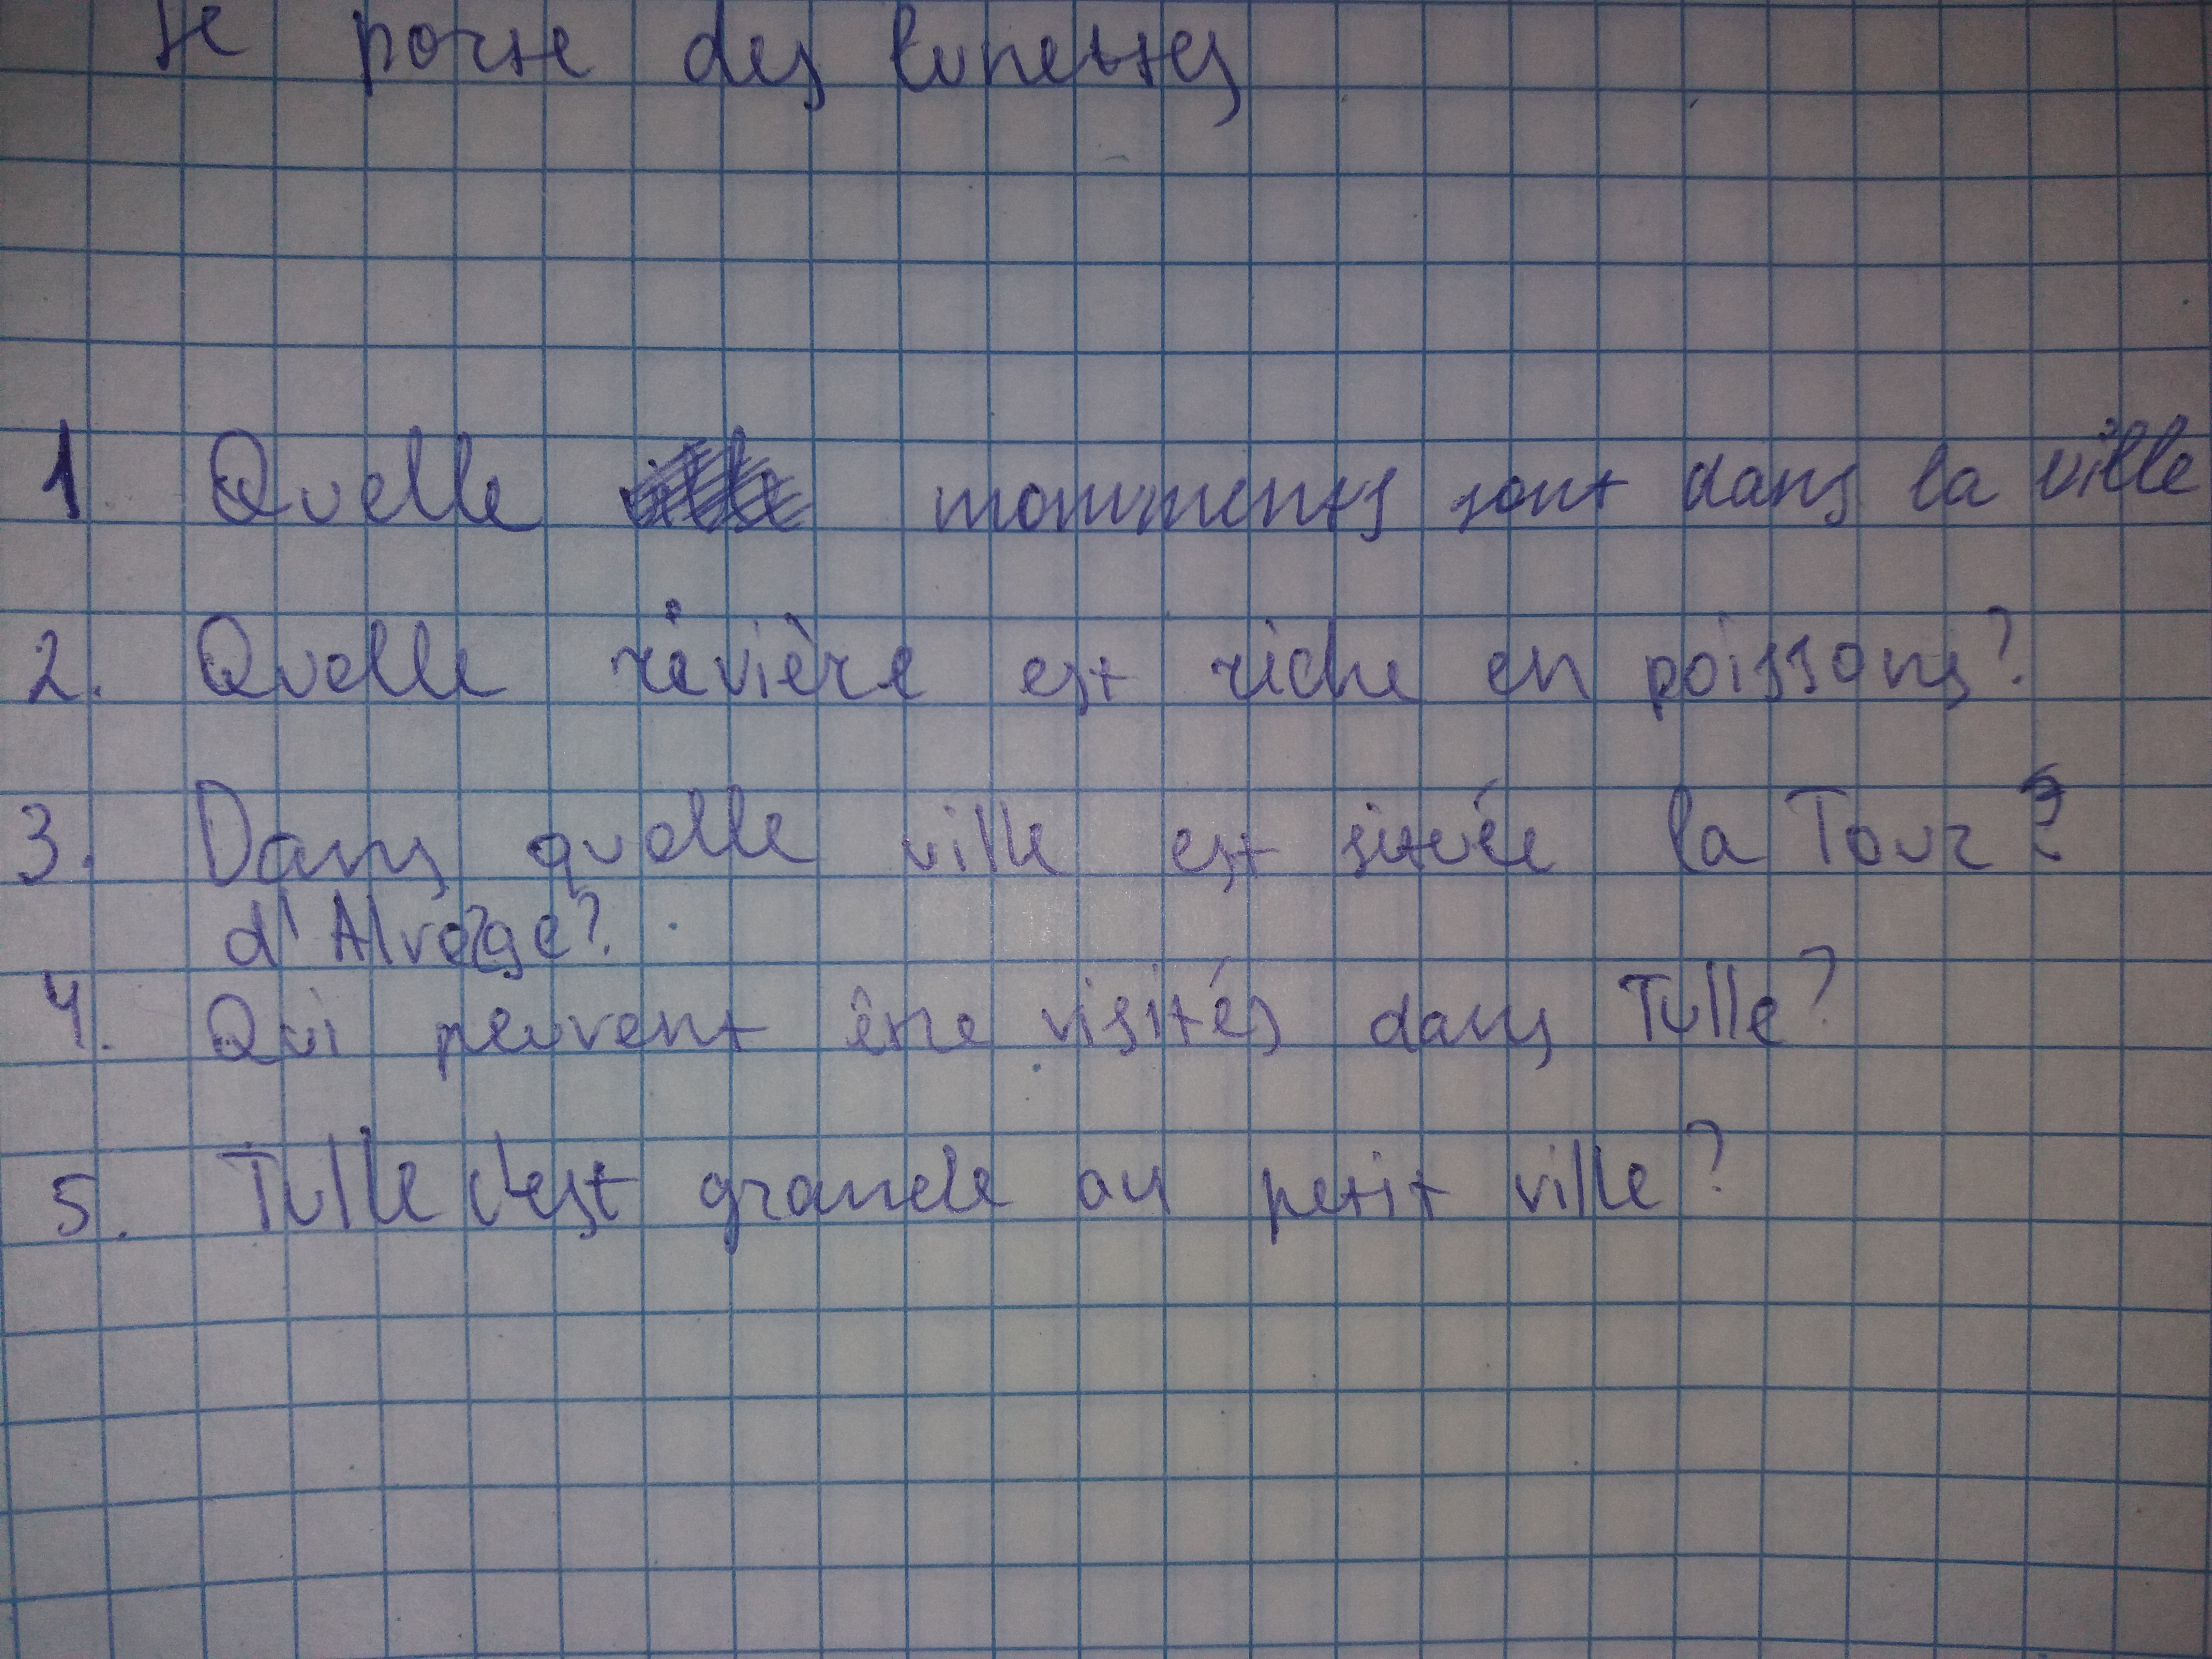 Je porte des lunettes
1 Quelle monuments sont dans la ville
2. Quelle rivière est riche en poissons?
3. Dans quelle ville est située la Tour?
d'Alvarge?
4. Qui peuvent être visités dans Tulle?
5. Tulle c'est grande ou petit ville?